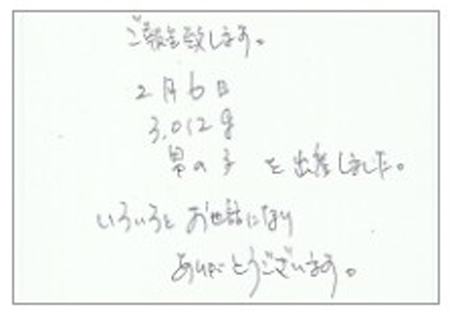 ご報告致します。
2月6日
3,012g
男の子 を出産しました。
いろいろと お世話になり
ありがとうございます。